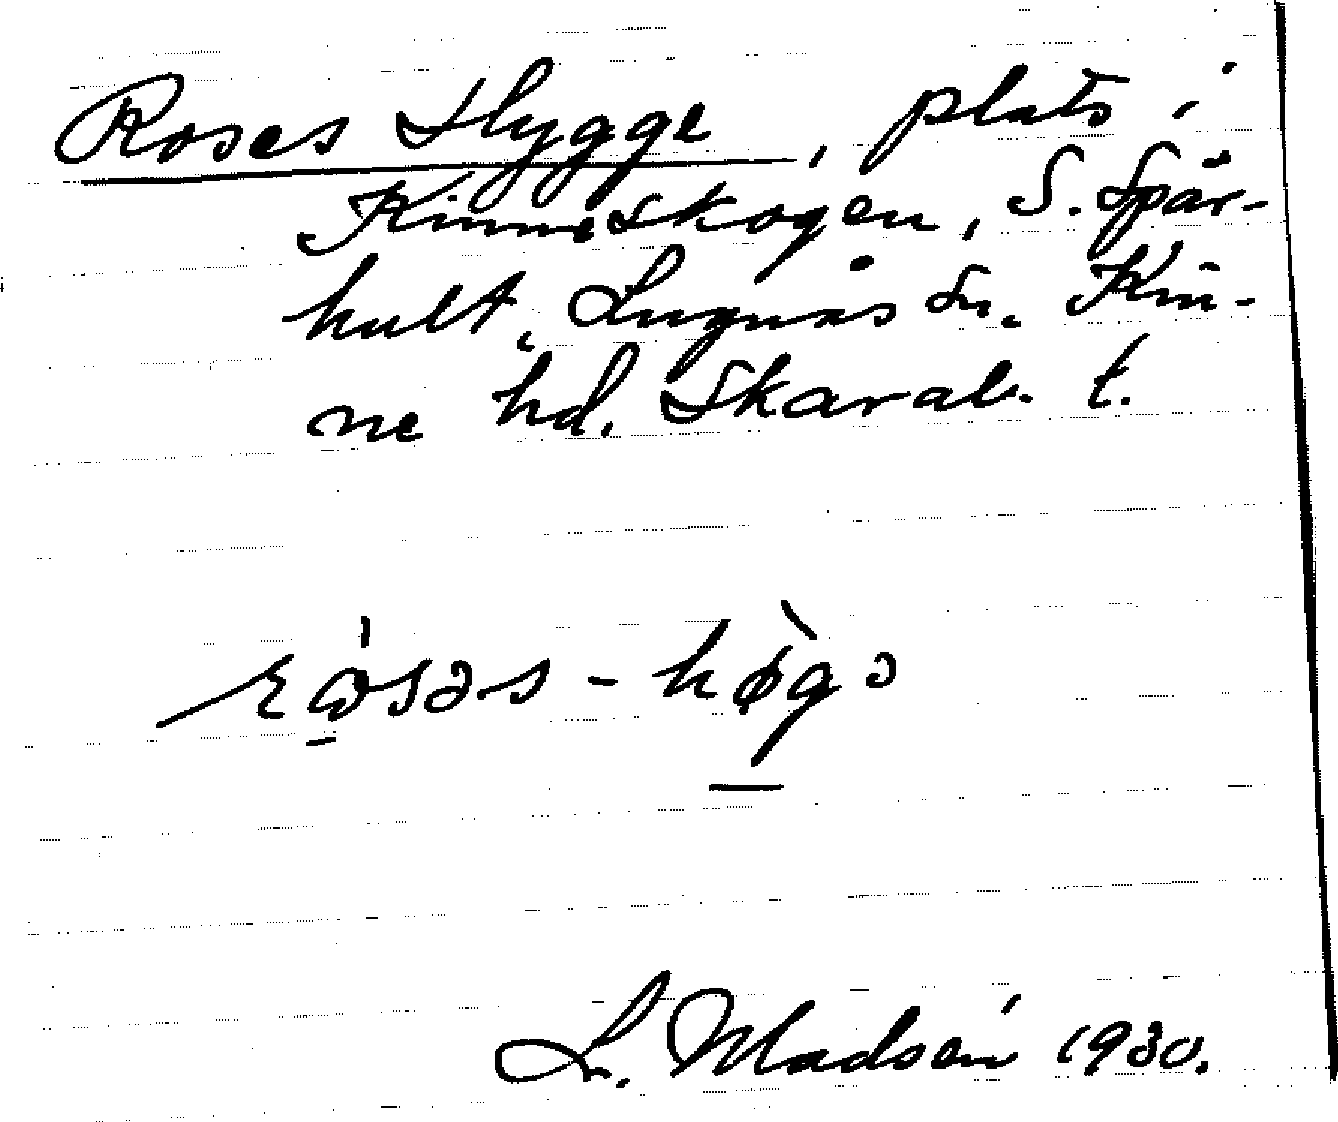 Roses Hygge, plats i
Kinneskogen, S. Spår-
hult, Lugnås sn. Kin-
ne hd. Skarab. t.
L. Madsén 1930.